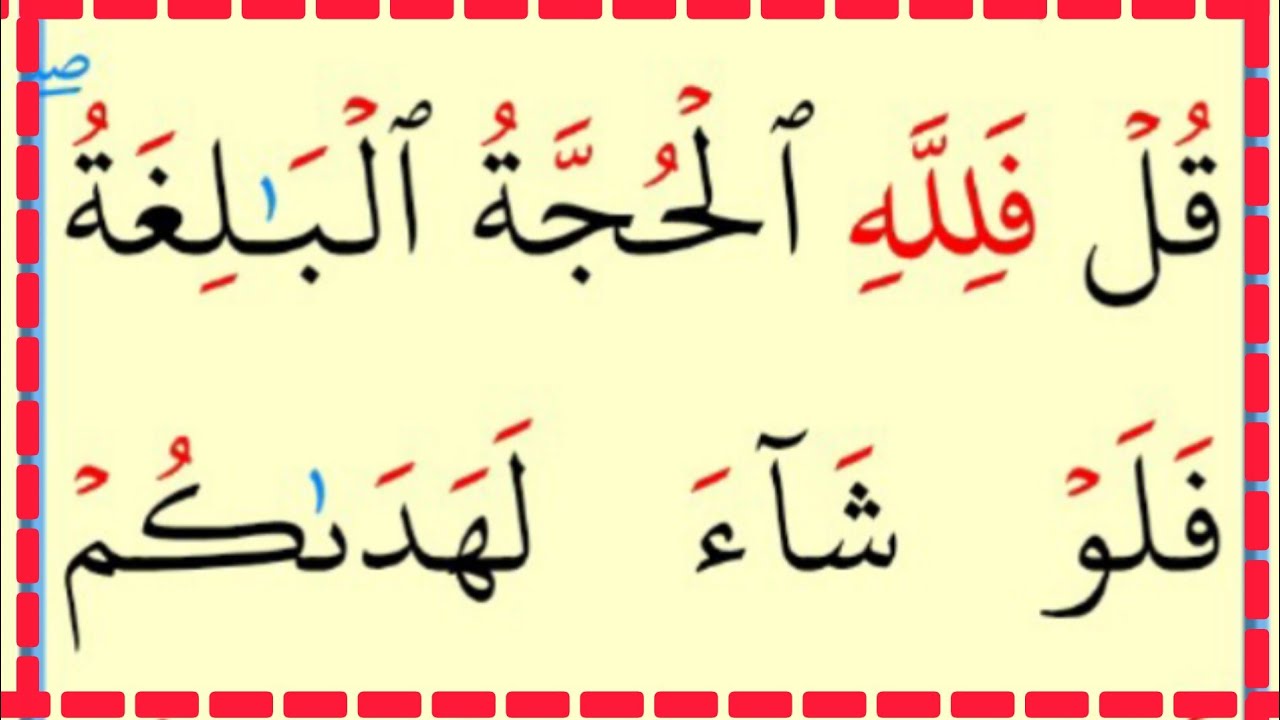 قُلْ فَلِلَّهِ ٱلْحُجَّةُ ٱلْبَـٰلِغَةُ
فَلَوْ شَآءَ لَهَدَىٰكُمْ